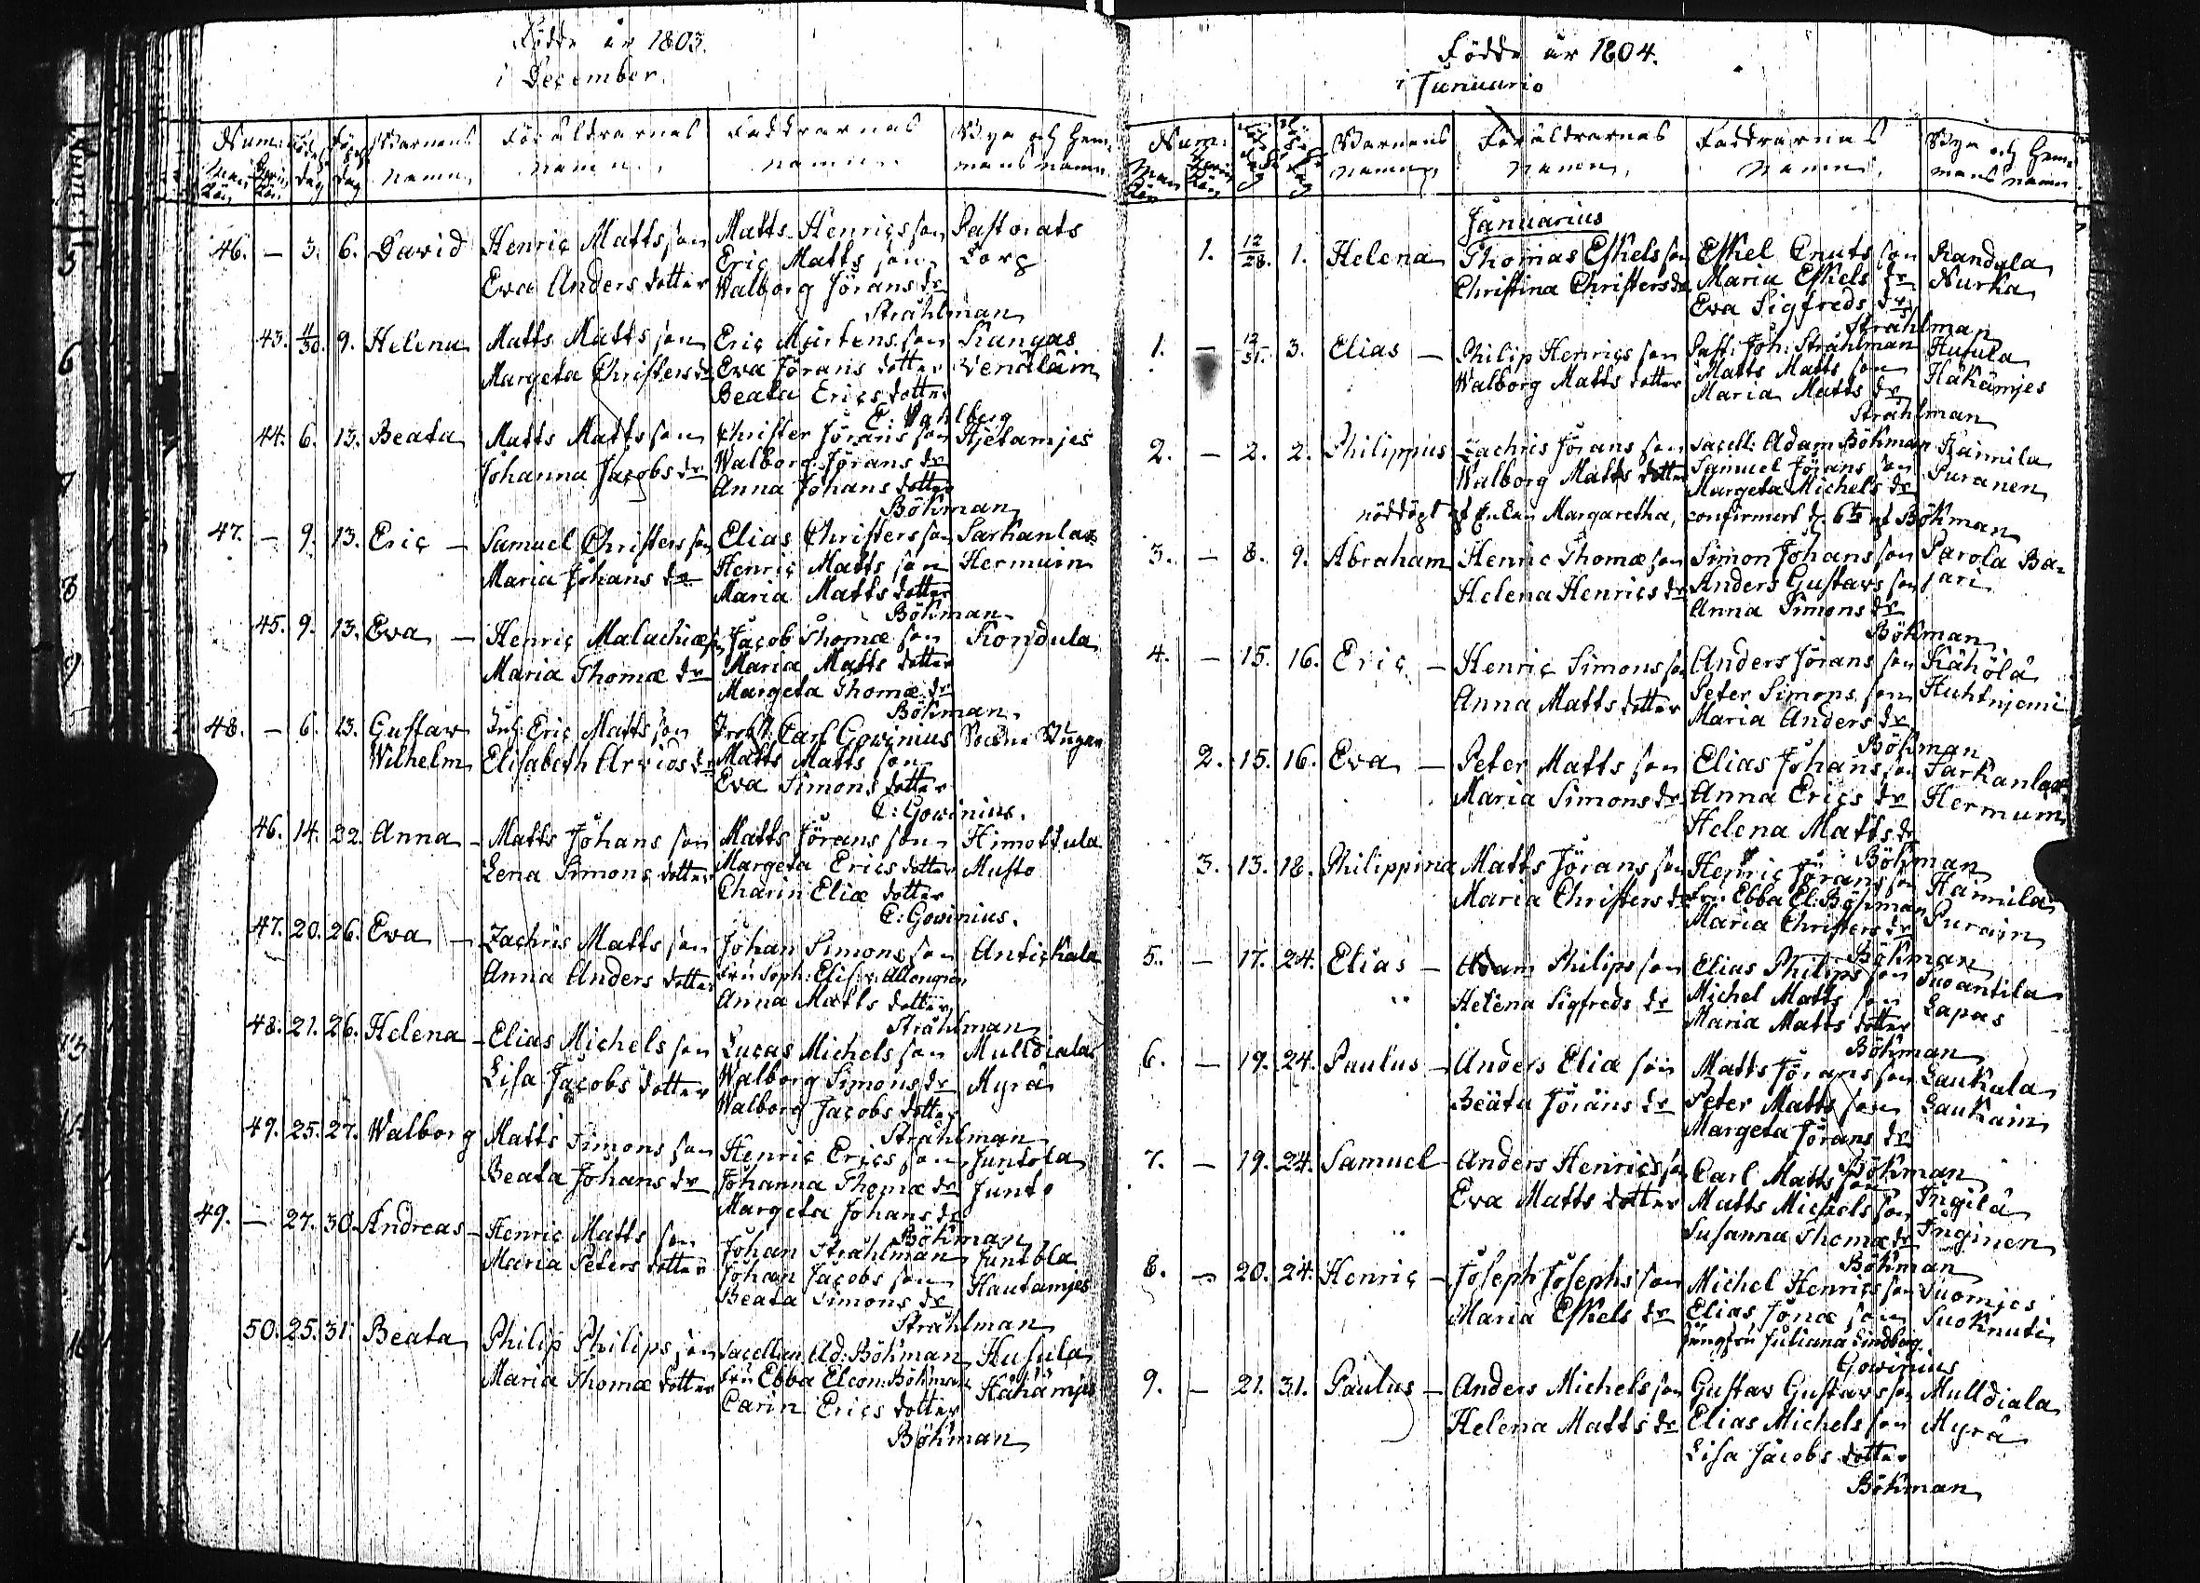 Födde år 1803.
i December.
Num: Födelse dag Döpelse dag Barnens namn. Föräldrarnas namn. Faddrarnas namn. Bye och Hemmans namn.
Man Kön. Qvin Kön.
46. — 3. 6. David Henric Matts son Matts Henrics son Pastorats
Eric Matts son Torp
Eva Anders dotter Walborg Jörans dr
Stråhlman
43. 11/30. 9. Helena Matts Matts son Eric Mårtens son Kangas
Margeta Christers dr Eva Jörans dotter Wendläin
Beata Erics dotter
C: Wahlberg
44. 6. 13. Beata Matts Mattsson Christer Jörans son Hietamies
Johanna Jacobs dr Walborg Jörans dr
Anna Johans dotter
Böhman
47. — 9. 13. Eric — Samuel Christers son Elias Christers son Sarkanlax
Maria Johans dr Henric Matts son Hermuin
Maria Matts dotter
Böhman
45. 9. 13. Eva — Henric Malachiæ sn Jacob Thomæ son Kondula
Maria Thomæ dr Maria Matts dotter
Margeta Thomæ dr
Böhman
48. — 6. 13. Gustav Inh: Eric Matts son Probst: Carl Gowinius
Wilhelm Elisabeth Arvids dr Matts Matts son
Eva Simons dotter
C: Gowinius.
46. 14. 22. Anna — Matts Johans son Matts Jörans son Himottula
Lena Simons dotter Margeta Erics dotter Musto
Charin Eliæ dotter
C: Gowinius.
47. 20. 26. Eva — Zachris Matts son Johan Simons son Antickala
Anna Anders dotter
Anna Matts dotter
Stråhlman
48. 21. 26. Helena — Elias Michels son Lucas Michels son Mulldiala
Lisa Jacobs dotter Walborg Simons dr Myrå
Walborg Jacobs dotter
Stråhlman
49. 25. 27. Walborg Matts Simons son Henric Erics son Juntola
Beata Johans dr Johanna Thomæ dr Junto
Margeta Johans dr
Böhman
49. — 27. 30. Andreas — Henric Matts son Johan Stråhlman Juntola
Maria Peters dotter Johan Jacobs son Hautamies
Beata Simons dr
Stråhlman
50. 25. 31. Beata Philip Philips son Sacellan Ad: Böhman Husula
Maria Thomæ dotter Fru Ebba Eleon: Böhman Hakämjes
Carin Erics dotter
Böhman
Födde år 1804.
i Januario
Num. Barnens namn. Föräldrarnas namn. Faddrarnas namn. Bye och Hemmans namn
Man Kön Qvin Kön
Januarius
1. 12/28. 1. Helena Thomas Eskels son Eskel Cnuts son Kandula
Christina Christers dr Maria Eskels dr Nurka
Eva Sigfreds dr
Stråhlman
1. — 12/31. 3. Elias — Philip Henrics son Past: Joh: Stråhlman Husula
Walborg Matts dotter Matts Matts son Hakämjes
Maria Matts dr
Stråhlman
2. — 2. 2. Philippus Zachris Jörans son Sacell: Adam Böhman Haimila
Walborg Matts dotter Samuel Jörans son Puranen
Margeta Michels dr
nöddöpt af Enkan Margaretha, confirmert d. 6te af Böhman
3. — 8. 9. Abraham Henric Thomæ son Simon Johans son Parola Ba-
Helena Henrics dr Anders Gustavs son jari
Anna Simons dr
Böhman
4. — 15. 16. Eric — Henric Simons son Anders Jörans son Kähölä
Anna Matts dotter Peter Simons son Huhtniemi
Maria Anders dr
Böhman
2. 15. 16. Eva — Peter Matts son Elias Johans son Sarkanlax
Maria Simons dr Anna Erics dr Hermuin
Helena Matts dr
Böhman
3. 13. 18. Philippina Matts Jörans son Henric Jörans son Haimila
Maria Christers dr Fru Ebba El: Böhman Purain
Maria Christers dr
Böhman
5. — 17. 24. Elias — Adam Philips son Elias Philips son Suoantila
Helena Sigfreds dr Michel Matts son Lapas
Maria Matts dotter
Böhman
6. — 19. 24. Paulus — Anders Eliæ son Matts Jörans son Laukala
Beata Jörans dr Peter Matts son Laukain
Margeta Jörans dr
Böhman
7. — 19. 24. Samuel Anders Henrics son Carl Matts son Ingilä
Eva Matts dotter Matts Michels son Inginen
Susanna Thomæ dr
Böhman
8. — 20. 24. Henric — Joseph Josephs son Michel Henrics son Suomjes
Maria Eskels dr Elias Jonæ son Suoknuti
Jungfru Juliana Lindberg
Gowinius
9. — 21. 31. Paulus — Anders Michels son Gustav Gustavs son Mulldiala
Helena Matts dr Elias Michels son Myrå
Lisa Jacobs dotter
Böhman